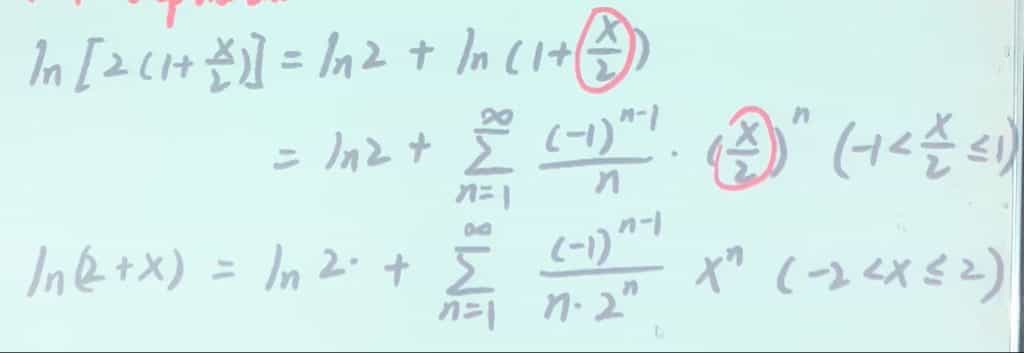 ln[2(1+x/2)] = ln2 + ln(1+x/2)
= ln2 + ∑_{n=1}^{∞} (-1)^{n-1}/n · (x/2)^n (-1<x/2≤1)
ln(2+x) = ln2· + ∑_{n=1}^{∞} (-1)^{n-1}/(n·2^n) x^n (-2<x≤2)